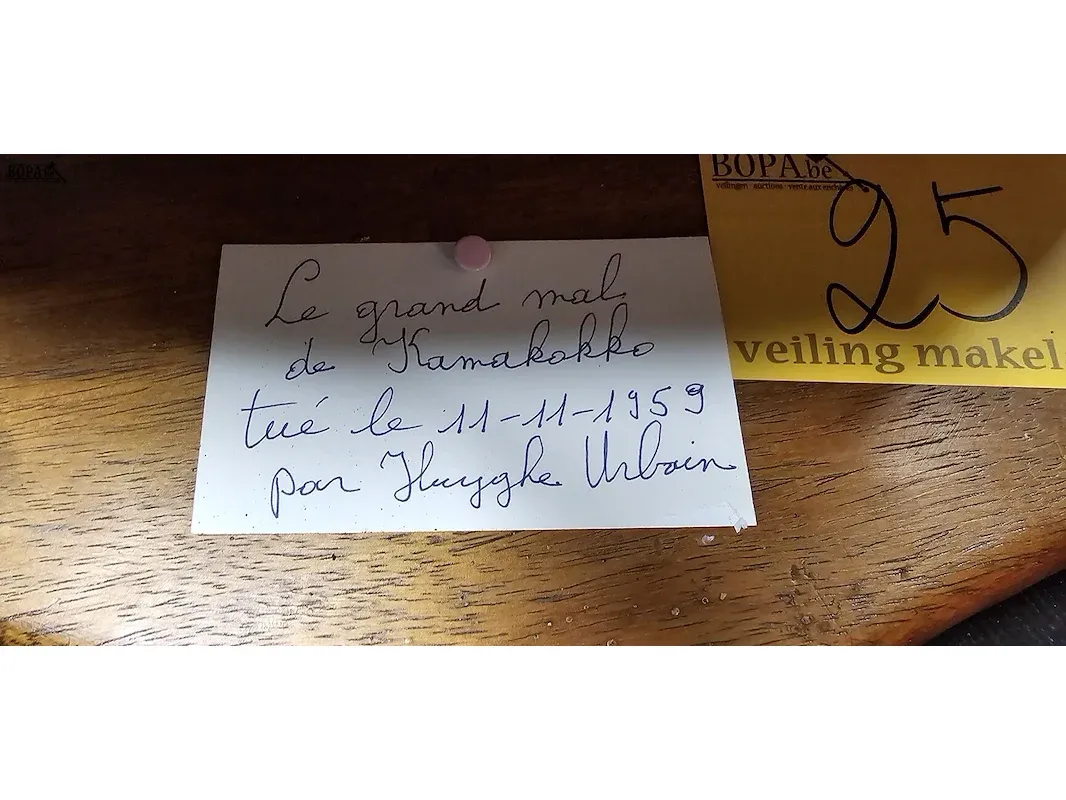 BOPA
BOPA.be
veilingen auctions ventes aux enchères
25
veiling makel
Le grand mal
de Kamakokko
tué le 11-11-1959
par Huyghe Urbain